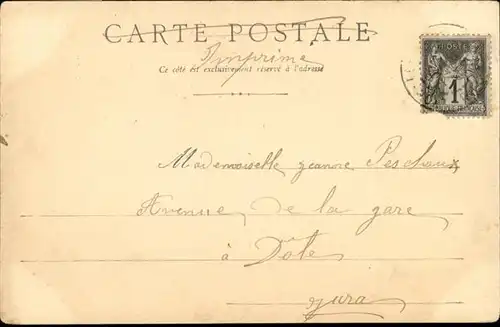 CARTE POSTALE
Imprimé
Ce côté est exclusivement réservé à l'adresse
POSTE
1
Mademoiselle Jeanne
Avenue de la gare
à Dôle
Jura